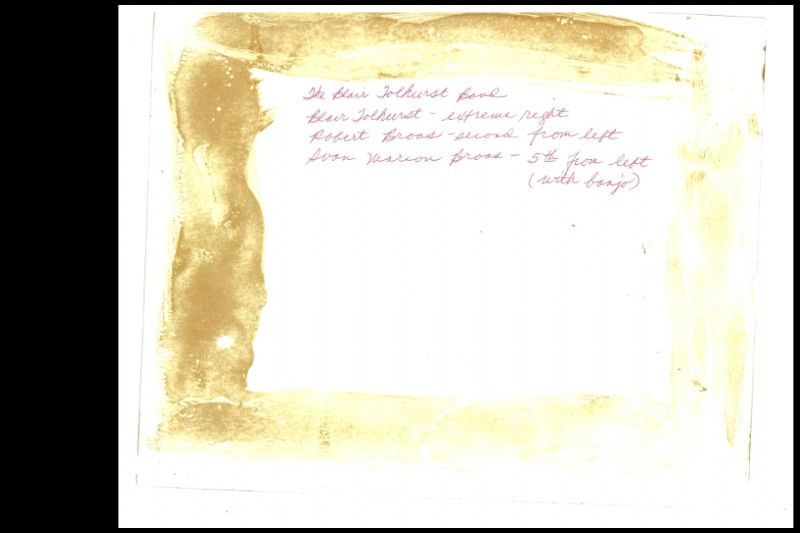 The Blair Tolhurst Band
Blair Tolhurst - extreme right
Robert Broas - second from left
Ivan Marion Broas - 5th from left
(with banjo)